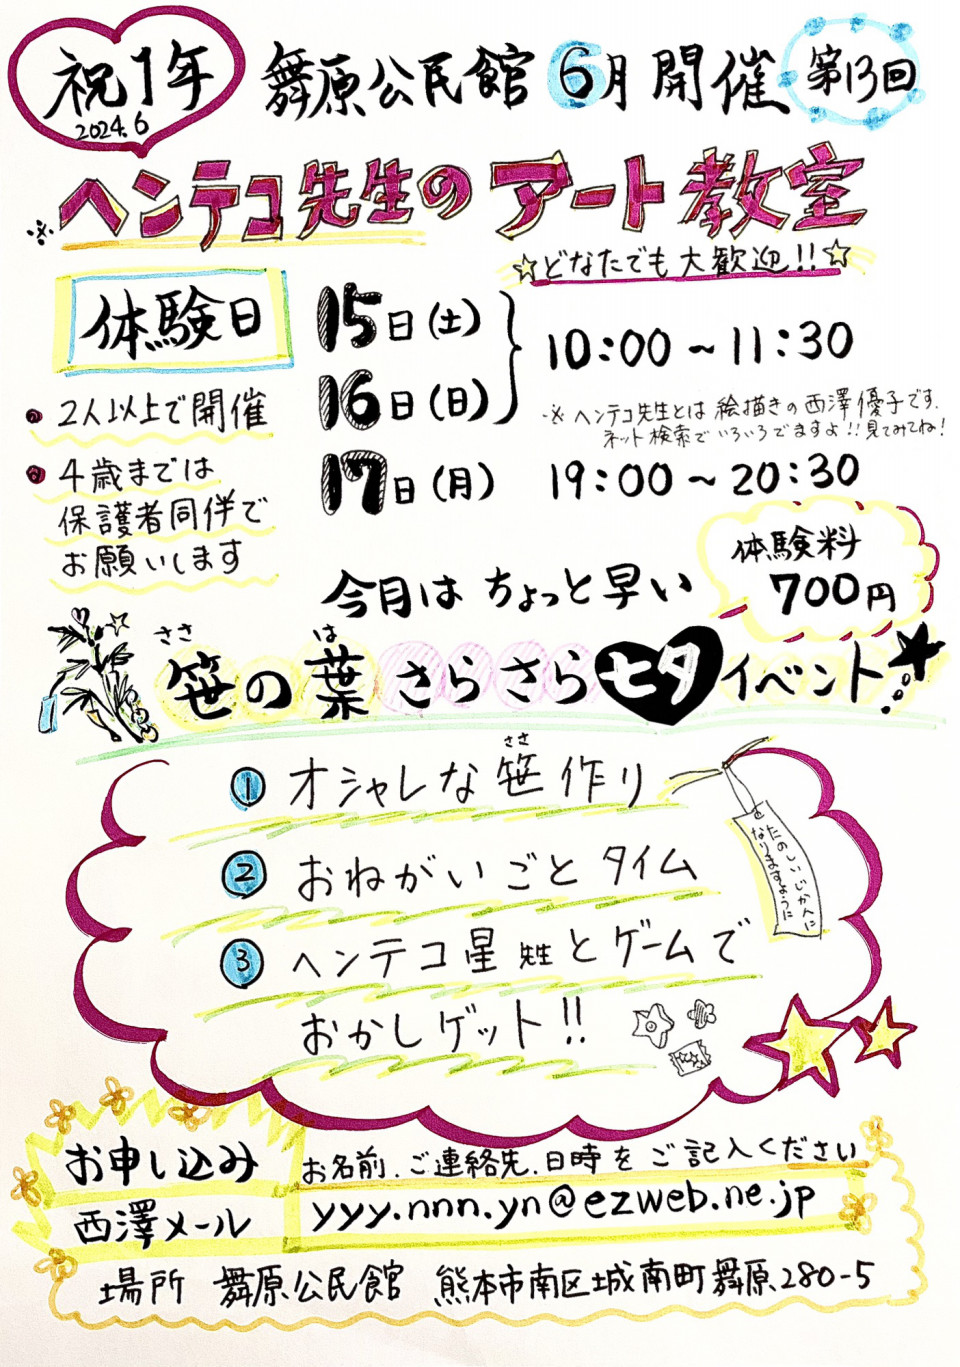 祝1年
2024.6
舞原公民館6月開催
第13回
※ヘンテコ先生のアート教室
☆どなたでも大歓迎!!☆
体験日
15日(土)
16日(日)
10:00～11:30
※ヘンテコ先生とは絵描きの西澤優子です、
ネット検索でいろいろでますよ!!見てみてね!
17日(月)
19:00～20:30
• 2人以上で開催
• 4歳までは
保護者同伴で
お願いします
体験料
700円
今月はちょっと早い
ささ は
笹の葉さらさら七夕イベント
ささ
① オシャレな笹作り
② おねがいごとタイム
③ ヘンテコ星先生とゲームで
おかしゲット!!
たのしいじかんに
なりますように
お申し込み
お名前、ご連絡先、日時をご記入ください
西澤メール
yyy.nnn.yn@ezweb.ne.jp
場所 舞原公民館 熊本市南区城南町舞原280-5